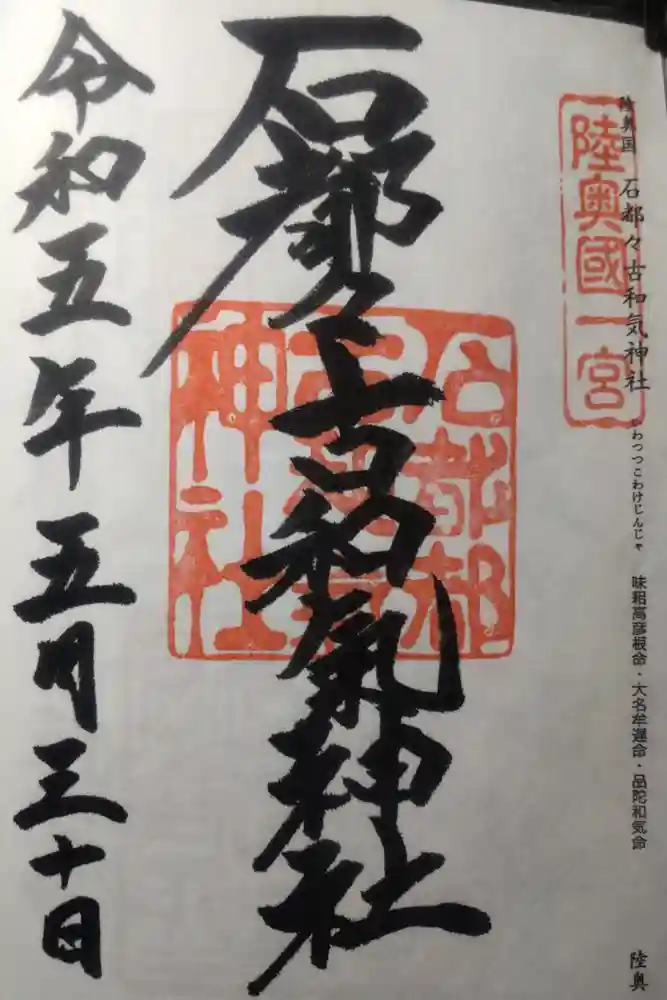 陸奥国 石都々古和気神社 いわつつこわけじんじゃ 味耜高彦根命・大名牟遅命・品陀和気命 陸奥
陸奥國一宮
石都々古和氣神社
石都都
古和氣
神社
令和五年五月三十日